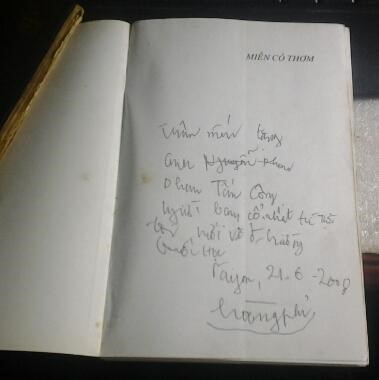 MIỀN CỎ THƠM
Thân mến tặng
anh Nguyễn
Phan Tấn Công
người bạn cố nhất từ
mới về ở trường
Saigon, 21-6-2008